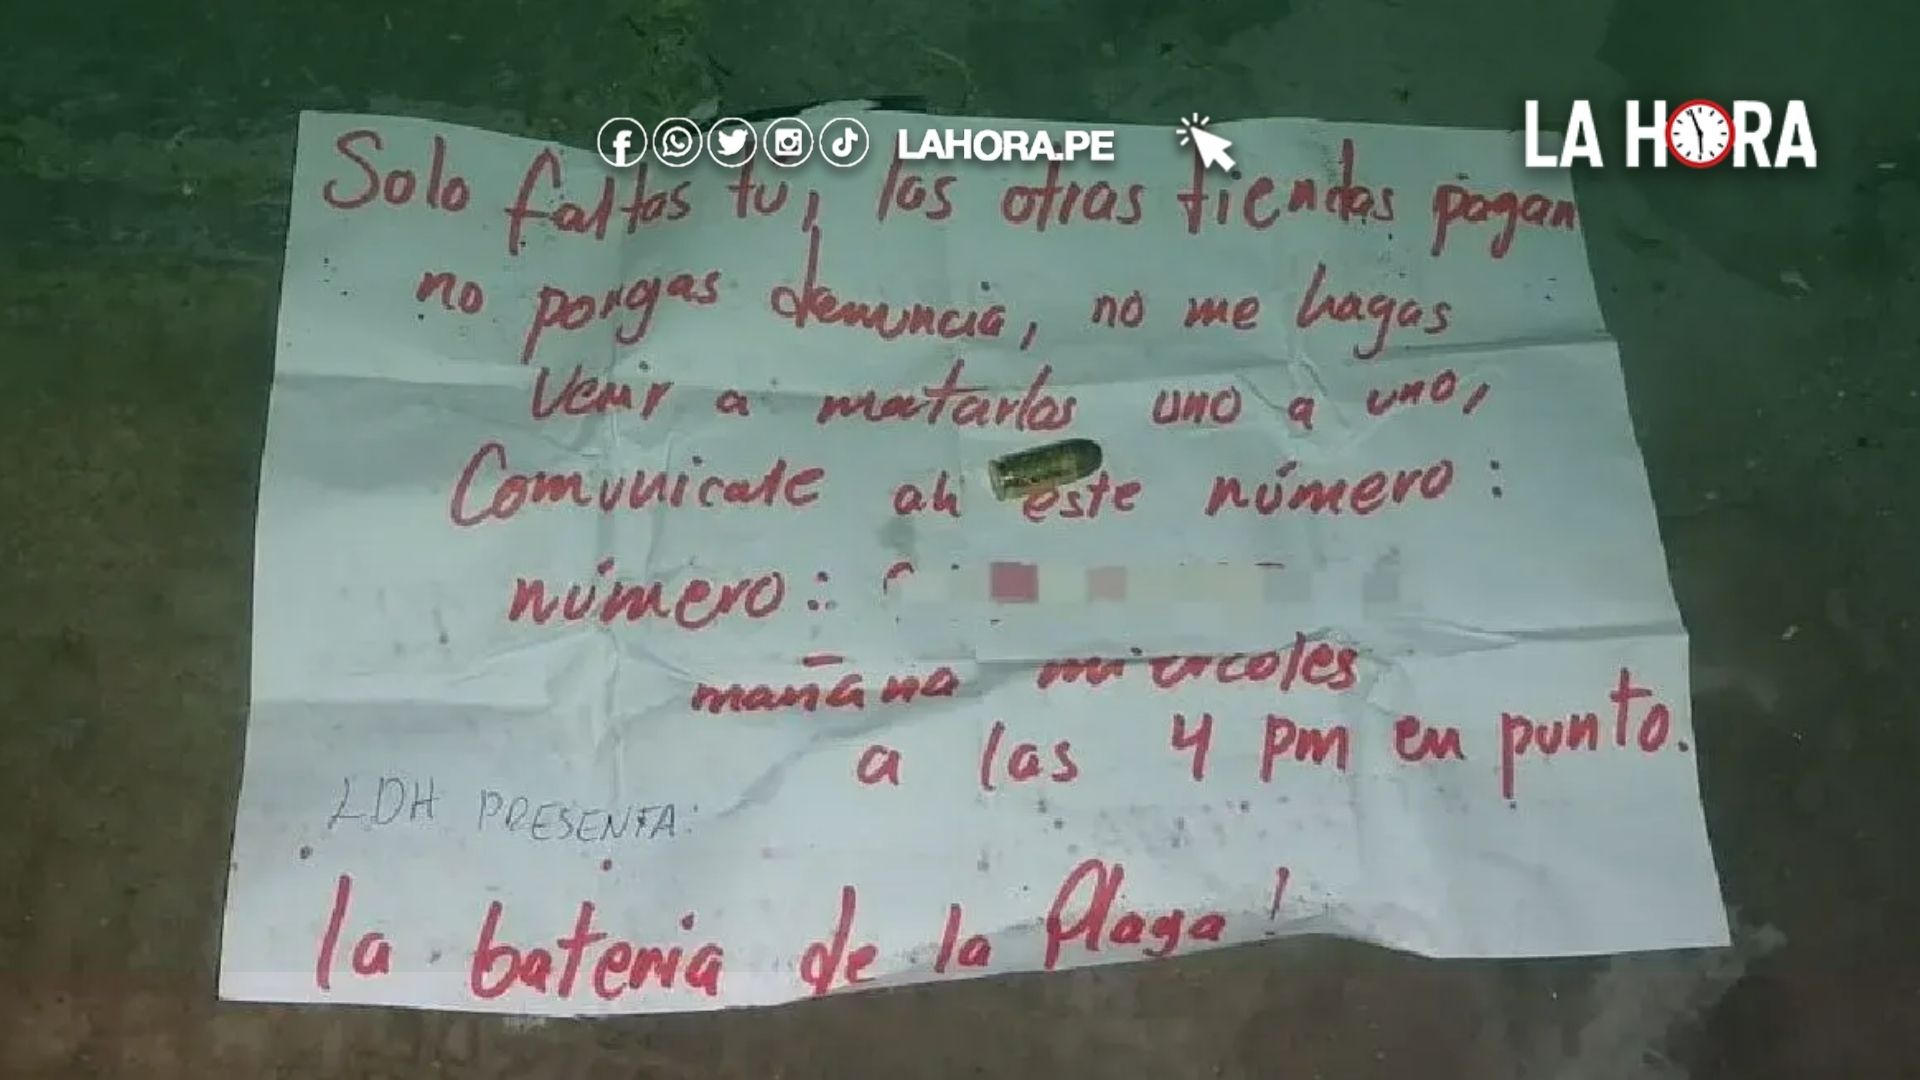 LAHORA.PE
LA HORA
Solo faltas tu, las otras tiendas pagan
no pongas denuncia, no me hagas
venir a matarlos uno a uno,
Comunicate ah este número:
número:
mañana miercoles
a las 4 pm en punto.
LDH PRESENTA:
la bateria de la Plaga!